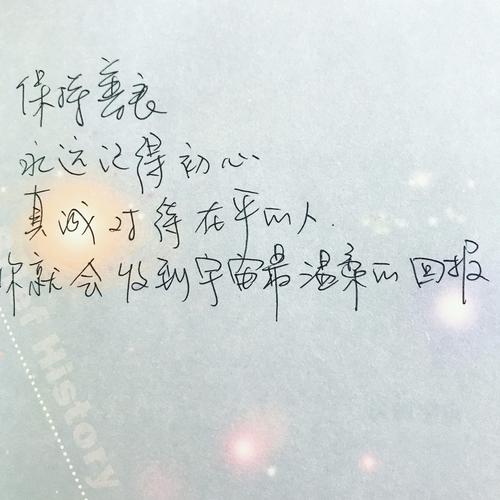 保持善良
永远记得初心
真诚对待在乎的人.
你就会收到宇宙最温柔的回报
of History